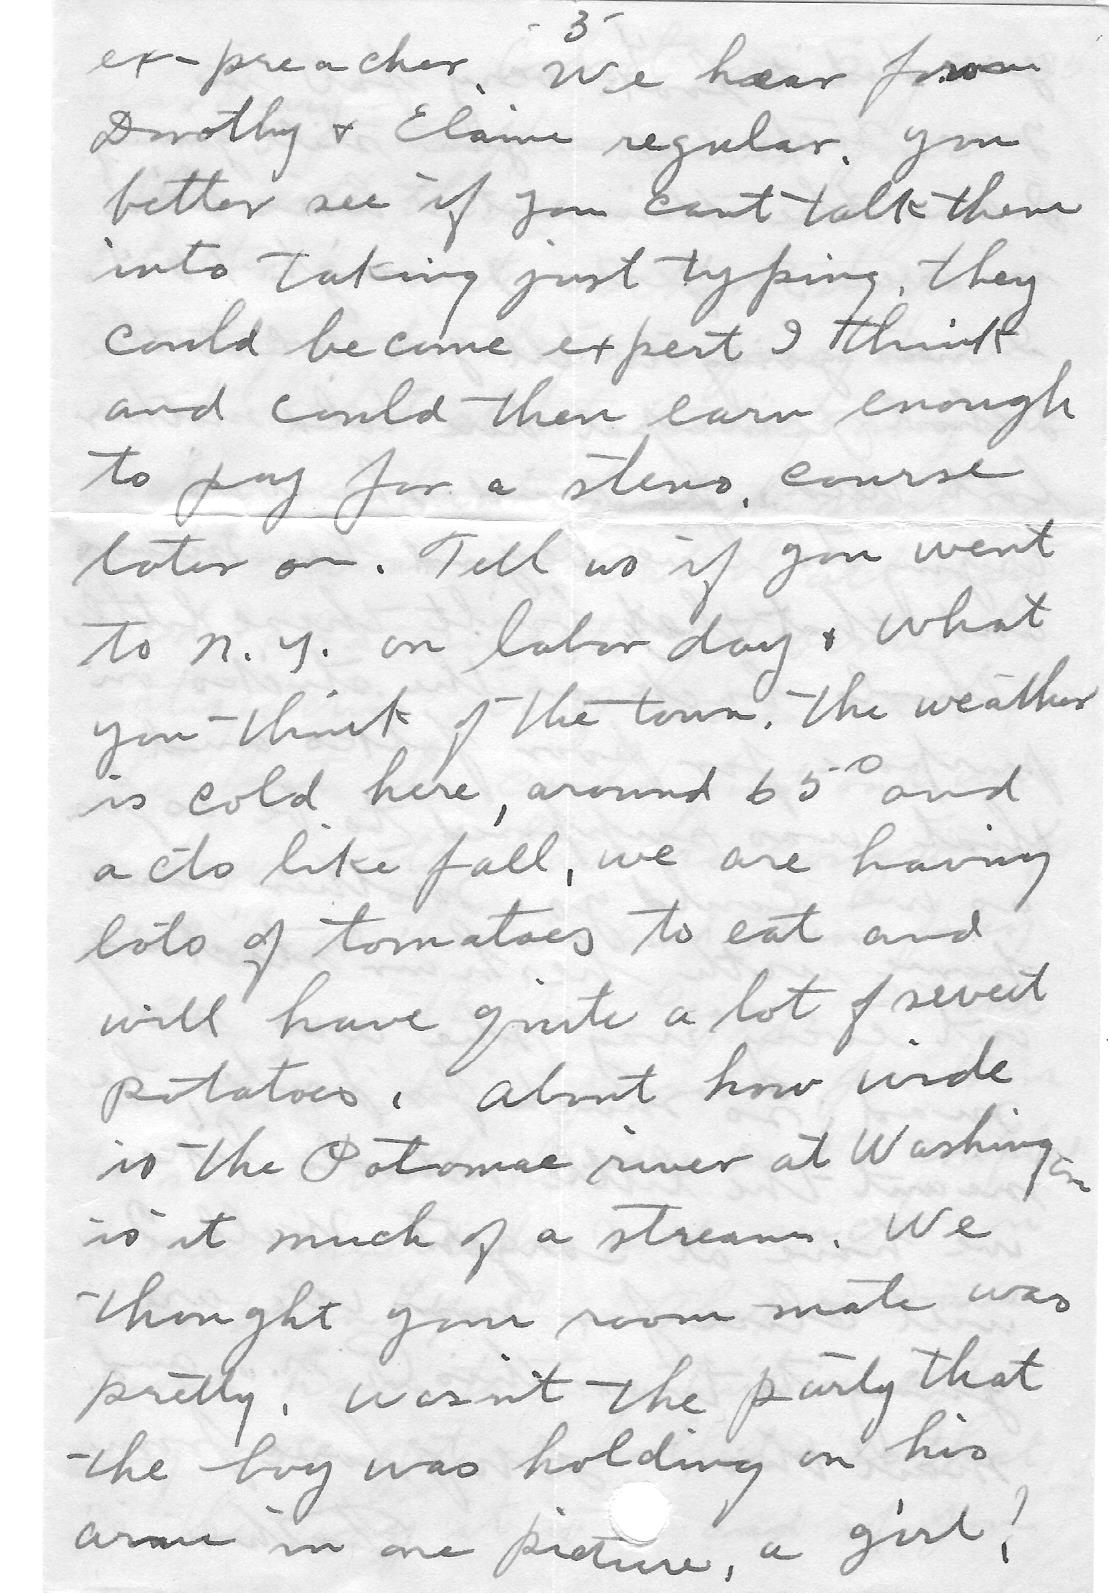 -3-
ex-preacher. We hear from
Dorothy & Elaine regular. you
better see if you cant talk them
into taking just typing, they
could become expert I think
and could then earn enough
to pay for a steno. course
later on. Tell us if you went
to n. y. on labor day & what
you think of the town. The weather
is cold here, around 65° and
acts like fall, we are having
lots of tomatoes to eat and
will have quite a lot of sweet
potatoes. About how wide
is the Potomac river at Washington
is it much of a stream. We
thought your room mate was
pretty. wasn't the party that
the boy was holding on his
arm in one picture, a girl!